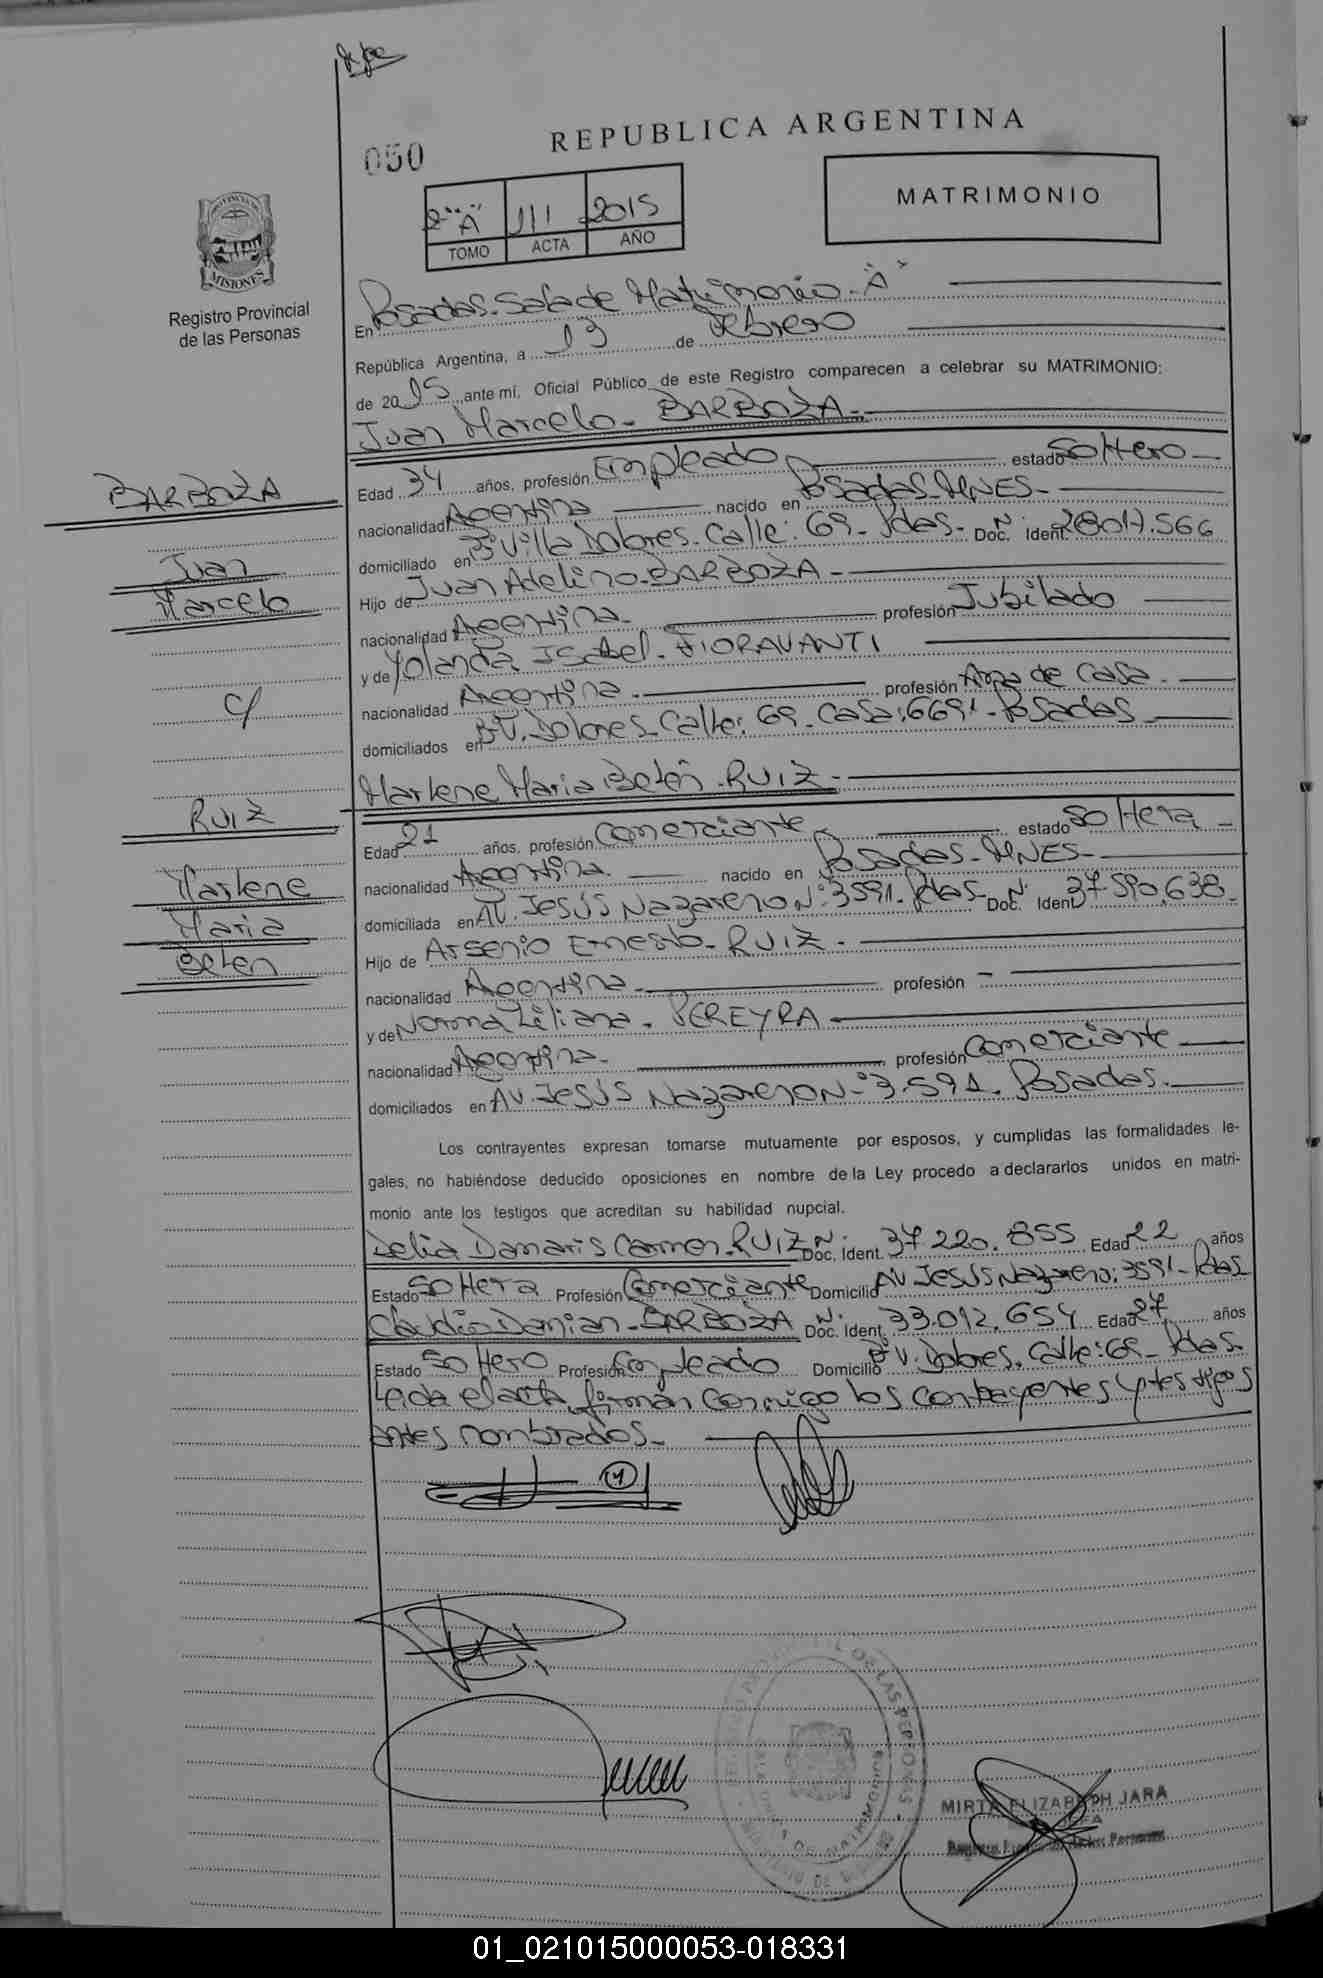 050
REPUBLICA ARGENTINA
MATRIMONIO
2-"A" 111 2015
TOMO ACTA AÑO
PROVINCIA DE MISIONES
Registro Provincial
de las Personas
En Posadas. Sala de Matrimonio - "A"
República Argentina, a 19 de Febrero
de 2015, ante mí, Oficial Público de este Registro comparecen a celebrar su MATRIMONIO:
Juan Marcelo - BARBOZA -
BARBOZA
Juan
Marcelo
c/
RUIZ
Marlene
Maria
Belen
Edad 34 años, profesión Empleado estado Soltero -
nacionalidad Argentina nacido en Posadas - MNES -
domiciliado en B° Villa Dolores. Calle: 69 - Pdas - Doc. Ident. N° 28.017.566
Hijo de Juan Adelino - BARBOZA -
nacionalidad Argentina - profesión Jubilado
y de Yolanda Isabel - FIORAVANTI
nacionalidad Argentina - profesión Ama de Casa -
domiciliados en B° V. Dolores - Calle: 69 - Casa: 6691 - Posadas
Marlene Maria Belén - RUIZ -
Edad 21 años, profesión Comerciante - estado Soltera -
nacionalidad Argentina nacido en Posadas - MNES -
domiciliada en AV. Jesús Nazareno N° 3591 - Pdas - Doc. Ident. N° 37.590.638 -
Hijo de Arsenio Ernesto - RUIZ -
nacionalidad Argentina - profesión -
y de Norma Liliana - PEREYRA -
nacionalidad Argentina - profesión Comerciante
domiciliados en AV. Jesús Nazareno N° 3.591 - Posadas -
Los contrayentes expresan tomarse mutuamente por esposos, y cumplidas las formalidades le-
gales, no habiéndose deducido oposiciones en nombre de la Ley procedo a declararlos unidos en matri-
monio ante los testigos que acreditan su habilidad nupcial.
Delia Damaris Carmen - RUIZ Doc. Ident. N° 37.220.855 Edad 22 años
Estado Soltera Profesión Comerciante Domicilio AV Jesús Nazareno: 3591 - Pdas
Claudio Damian - BARBOZA Doc. Ident. N° 33.012.654 Edad 27 años
Estado Soltero Profesión Empleado Domicilio B° V. Dolores. Calle: 69 - Pdas -
Leida el acta, firman conmigo los contrayentes y testigos
antes nombrados -
MIRTA ELIZABETH JARA
JEFA
01_021015000053-018331